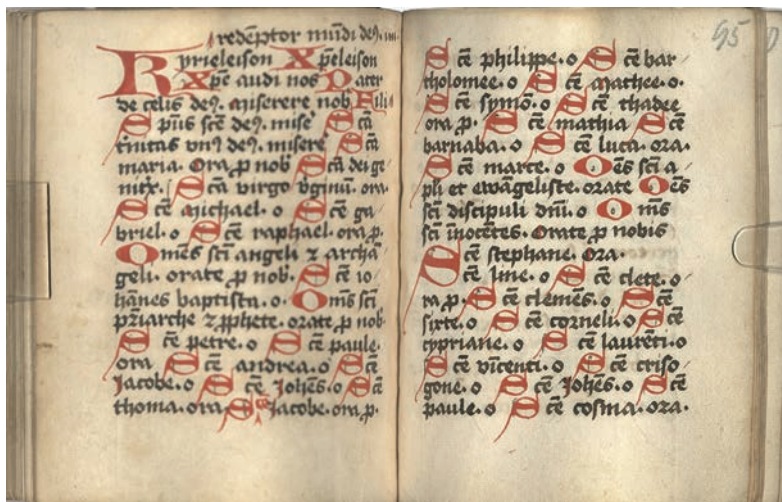 redēptor mūdi de9. m
Kyrieleison Xp̄eleison
Xp̄e audi nos Pater
de celis de9. miserere nob Fili
Sp̄us scē de9. misē Scā
trinitas vn9 de9. miserē Scā
maria. Ora ꝑ nob Scā dei ge
nitx. Scā virgo v̄ginū. ora
Scē Michael. o Scē ga
briel. o Scē raphael. ora ꝑ.
Omēs scī angeli ⁊ archā
geli. orate ꝑ nob. Scē io
hānes baptista. o. Omīs scī
pr̄iarche ⁊ ꝓphete. orate ꝑ nob
Scē petre. o Scē paule.
ora Scē andrea. o Scē
Jacobe. o Scē Johēs. o Scē
thoma. ora. S Jacobe. ora ꝑ.
95
Scē philippe. o Scē bar
tholomee. o Scē mathee. o.
Scē symō. o Scē thadee
ora ꝑ. Scē mathia Scē
barnaba. o Scē luca. ora.
Scē marce. o Oēs scī a
pli et ewāgeliste. orate Oēs
scī discipuli dn̄i. o Omīs
scī īnocētes. Orate ꝑ nobis
Scē stephane. Ora.
Scē line. o Scē clete. o
ra ꝑ. Scē clemēs. o Scē
sixte. o Scē corneli. o Scē
cypriane. o Scē laurēti. o
Scē vīcenti. o Scē criso
gone. o Scē Johēs. o Scē
paule. o Scē cosma. ora.